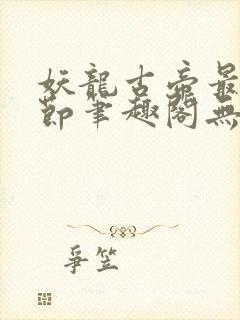 妖龍古帝最
節筆趣閣無
爭笠